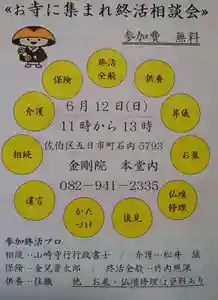 ≪お寺に集まれ終活相談会≫
参加費 無料
終活
全般
保険
供養
介護
葬儀
6月12日(日)
11時から13時
相続
お墓
佐伯区五日市町石内5793
金剛院 本堂内
遺言
仏壇
修理
082-941-2335
かた
づけ
後見
参加終活プロ
相続…山﨑守行行政書士 / 介護…松井 誠
保険…金児晋太郎 / 終活全般…竹内照深
供養…住職 他 お墓・仏壇修理は資料あり